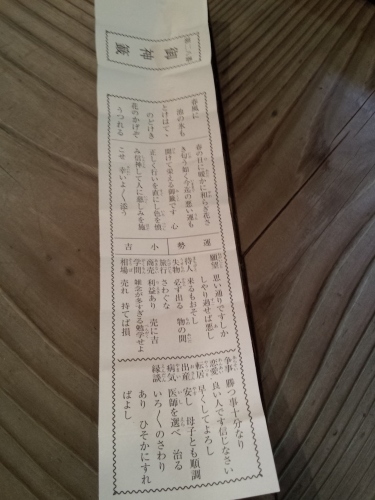 第一八番
御神籤
春風に
池の氷も
とけはてゝ
のどけき
花のかげぞ
うつれる
春の日に暖かに和らぎ花さ
き匂う如く今迄の悪い運も
開けて栄える御籤です 心
正しく行いを直にし色を慎
み信神して人に慈しみを施
こせ 幸いよ〱添う
運勢 小吉
願望 思い通りですしか
しやり過せば悪し
待人 来るもおそし
失物 必ず出る 物の間
旅行 さわぐな
商売 利益あり 売に吉
学問 雑念が多すぎる勉学せよ
相場 売れ 持てば損
争事 勝つ事十分なり
恋愛 良い人です信じなさい
転居 早くしてよろし
出産 安し 母子とも順調
病気 医師を選べ 治る
縁談 いろ〱のさわり
あり ひそかにすれ
ばよし